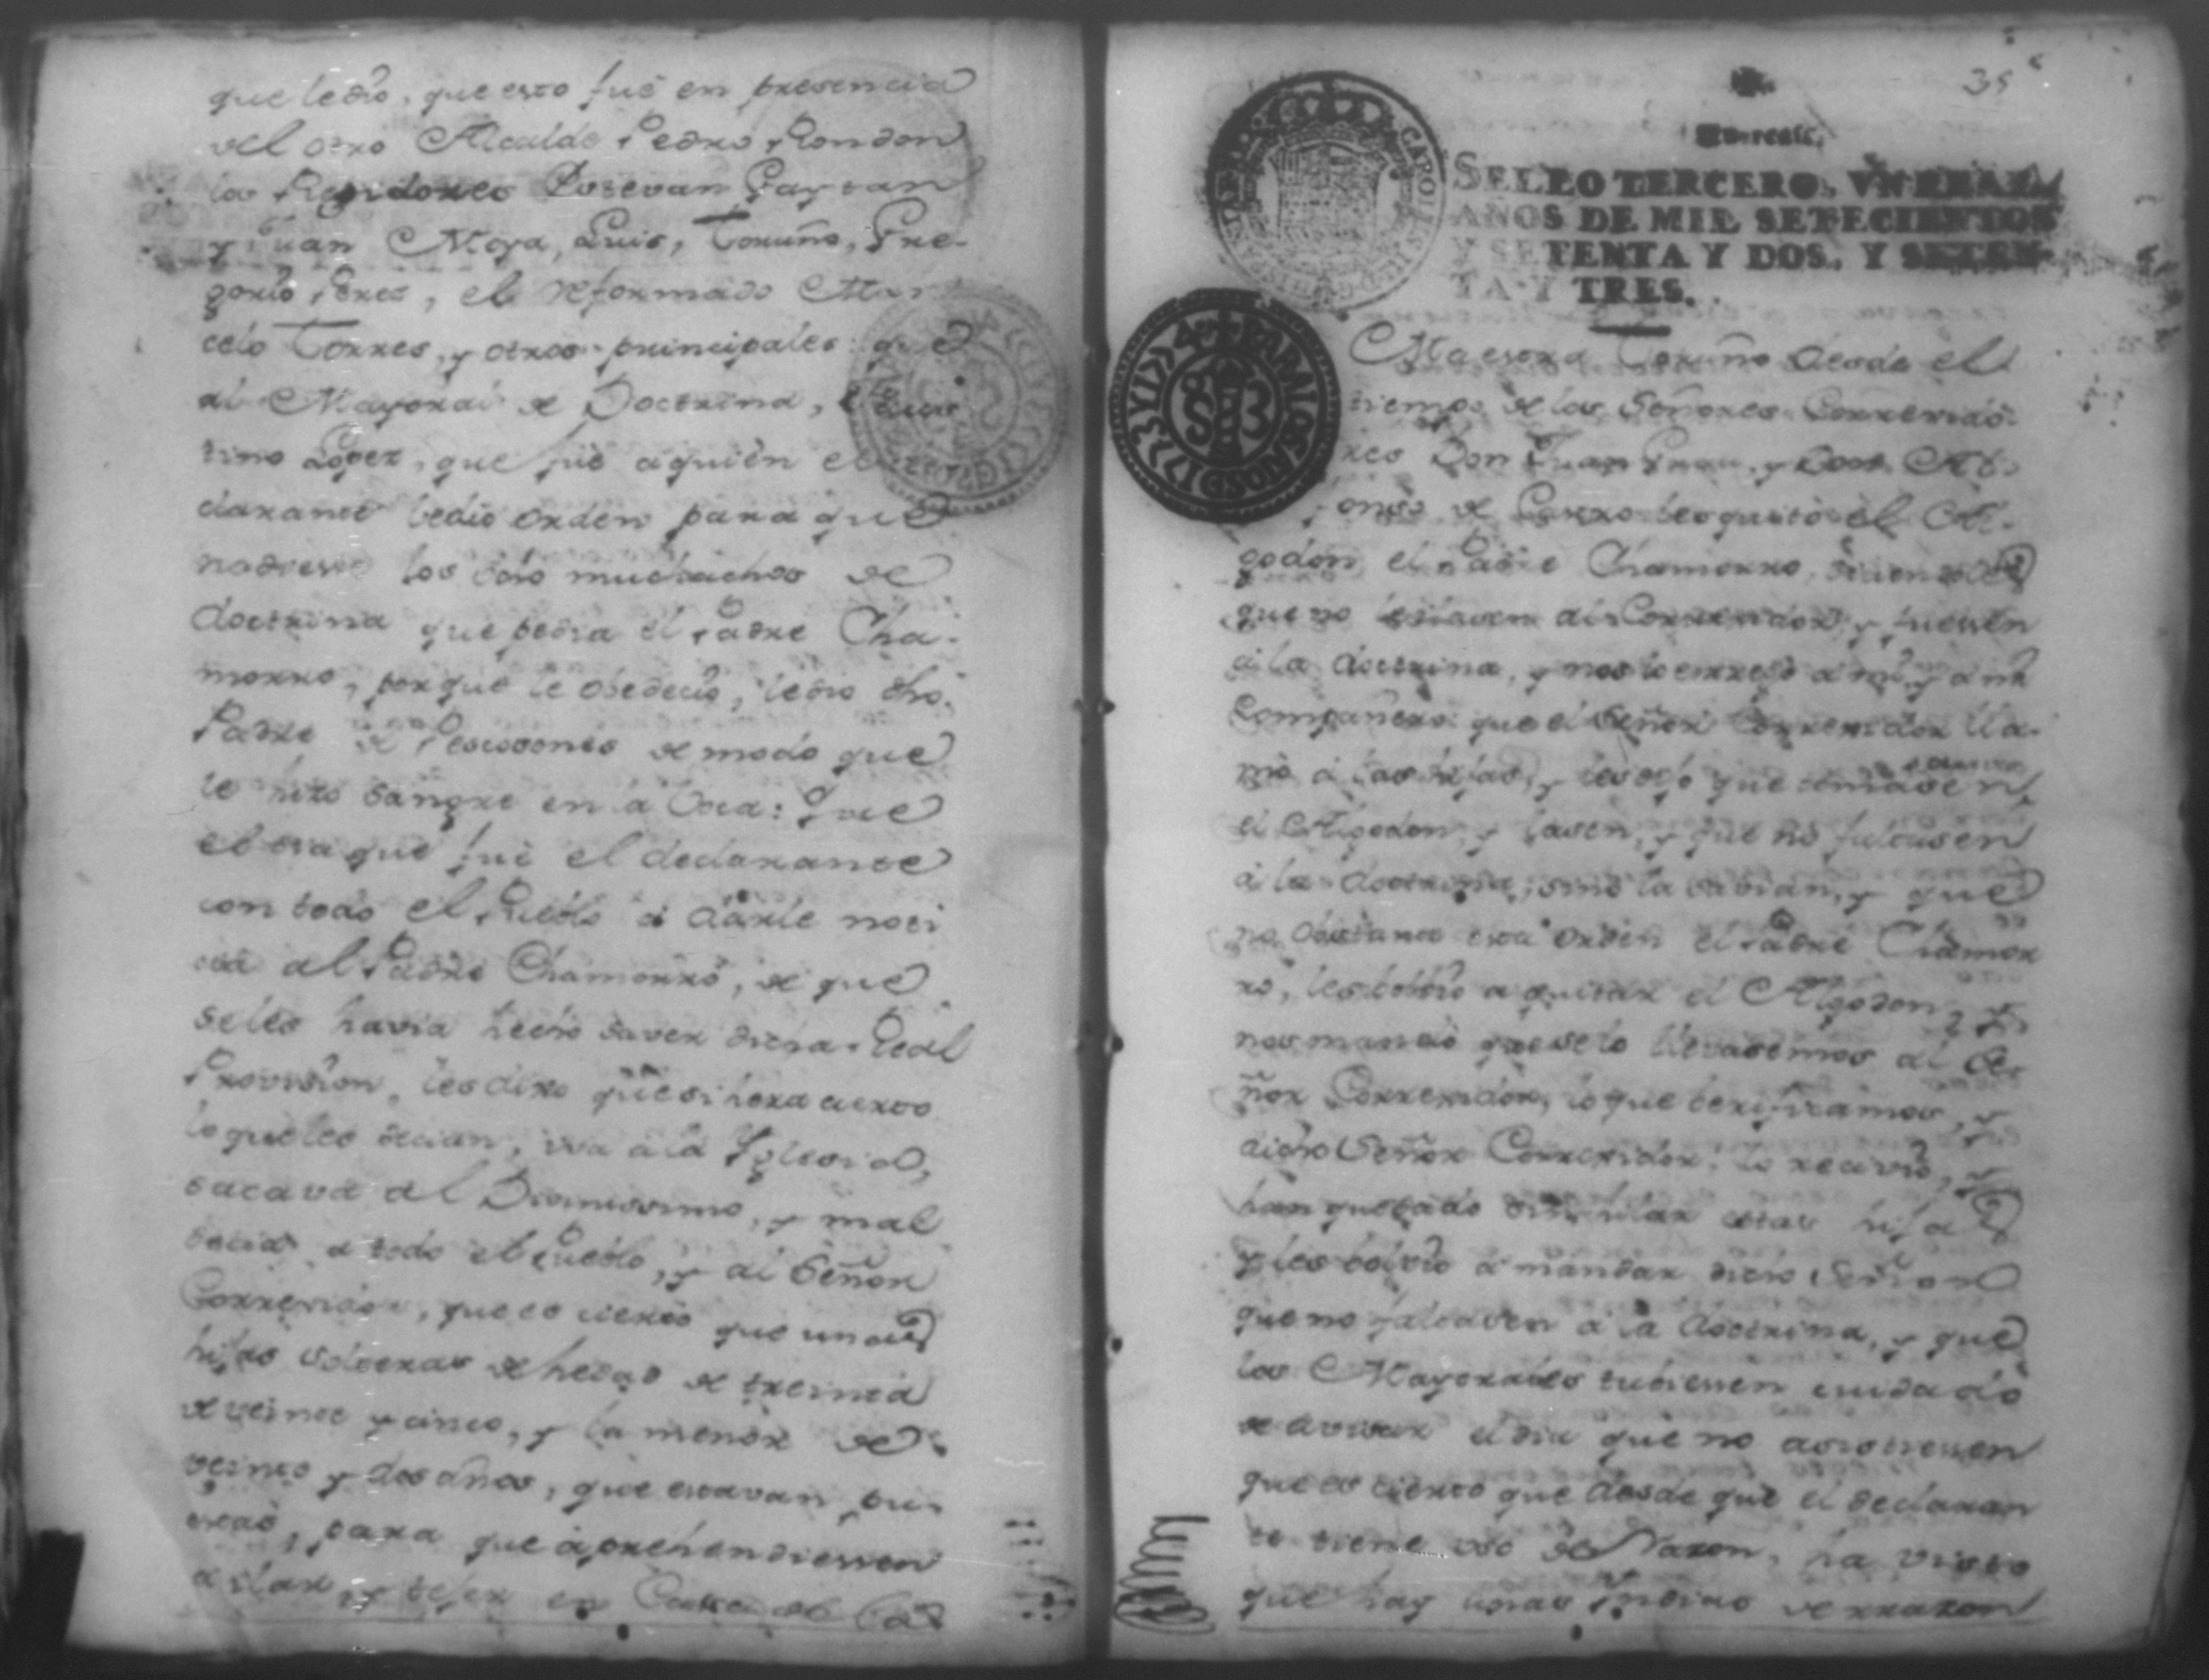 que ledio, que esto fue en presencia
del otro Alcalde Pedro Rondon
los Regidores Estevan Gaytan
y Juan Moya, Luis, Toruño, Gre-
gorio Peres, el reformado Mar
celo Torres, y otros principales: que
al Mayoral de Doctrina,
tino Lopez, que fue aquien el
clarante ledio orden para que
nodiesse los dos muchachos de
doctrina que pedia el Padre Cha-
morro, porque le obedecio, ledio dho.
Padre de Pescosones de modo que
le hizo sangre en la boca: Que
el dia que fue el declarante
con todo el Pueblo à darle noti
cia al Padre Chamorro, de que
seles havia hecho saver dicha Real
Provision, les dixo que si hera cierto
loqueles decian, iva ala Yglesia,
sacava al Divinissimo, y mal
decia a todo el Pueblo, y al Señor
Corregidor, que es cierto que unas
hijas solteras de hedad de treinta
de veinte y cinco, y la menor de
veinte y dos años, que estavan
para que aprehendiessen
a ilar, y tejer en Cassa de la
35
Un real.
SELLO TERCERO, VN REAL,
AÑOS DE MIL SETECIENTOS
Y SETENTA Y DOS, Y SETEN-
TA Y TRES.
PARA LOS AÑOS D 1774 Y 1775
Maestra Toruño desde el
tiempo de los Señores Corregido-
res Don Juan y Don Al-
onso de les quitò el Al-
godon el Padre Chamorro, diciendoles
que no al Corregidor, y fuessen
ala doctrina, y nos lo entregò a mi, y a mi
Compañero: que el Señor Corregidor lla-
mò à las hijas, y les dijo que tomasen
el Algodon, y que no faltasen
à la doctrina, sino la savian, y que
no obstante esta orden el Padre Chamor
ro, les bolvio a quitar el Algodon, y
nos mandò que se lo llevasemos al Se-
ñor Corregidor, lo que berificamos, y
dicho Señor Corregidor lo recivio, y
han quedado sin hilar estas hijas
y les bolvio à mandar dicho Señor
que no faltasen à la doctrina, y que
los Mayorales tubiessen cuidado
de avisar el dia que no asistiessen
que es cierto que desde que el declaran
te tiene uso de Razon, ha visto
que hay unas Indias